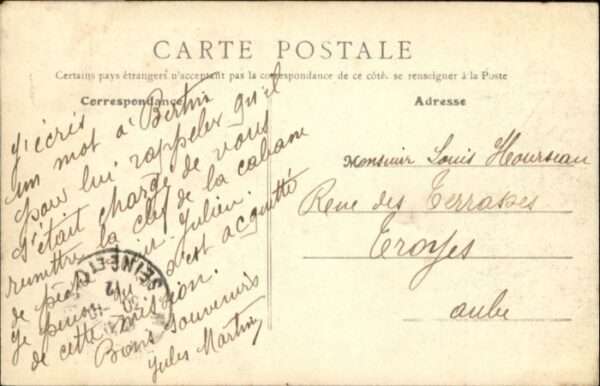 CARTE POSTALE
Certains pays étrangers n'acceptant pas la correspondance de ce côté, se renseigner à la Poste
Correspondance
J'écris
un mot à Bertin
pour lui rappeler qu'il
s'était chargé de vous
remettre la clef de la cabane
de St. Julien.
Je pense qu'il s'est acquitté
de cette mission.
Bons souvenirs
Jules Martin
SEINE ET O
12
30
Adresse
Monsieur Louis Heurseau
Rue des Terrasses
Troyes
Aube